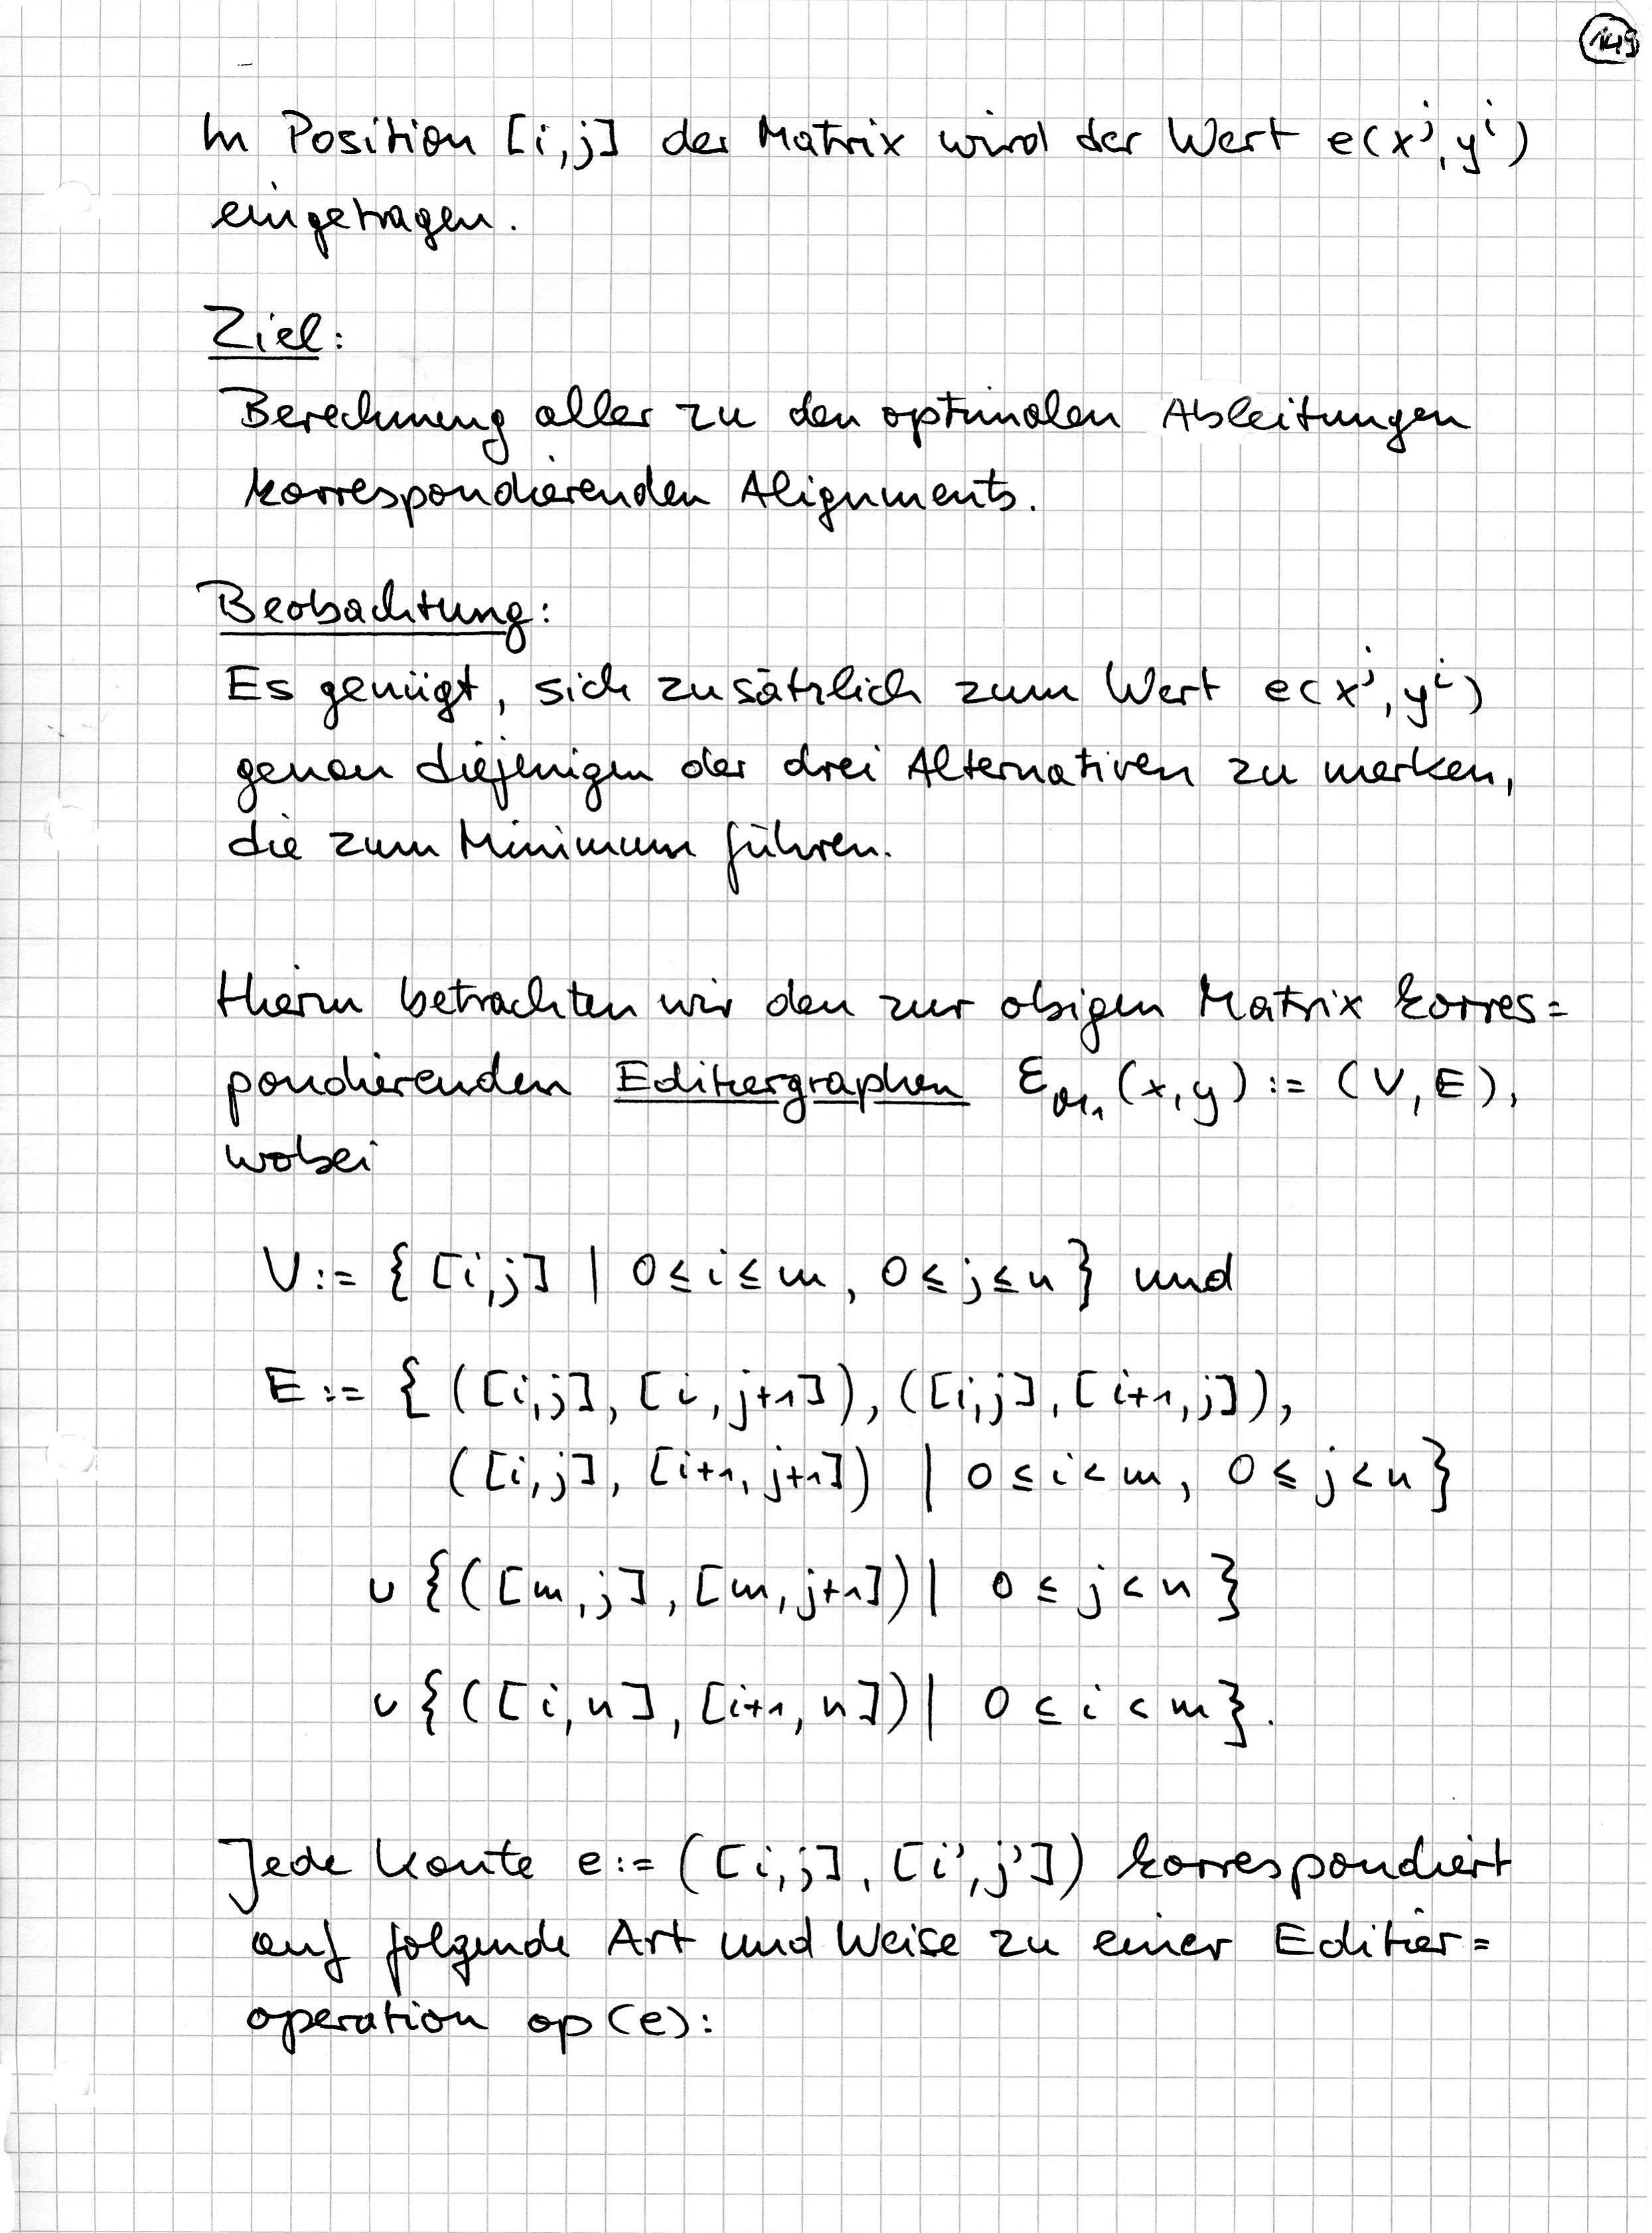 149
In Position [i,j] der Matrix wird der Wert e(x^j, y^i)
eingetragen.
Ziel:
Berechnung aller zu den optimalen Ableitungen
korrespondierenden Alignments.
Beobachtung:
Es genügt, sich zusätzlich zum Wert e(x^j, y^i)
genau diejenigen der drei Alternativen zu merken,
die zum Minimum führen.
Hierzu betrachten wir den zur obigen Matrix korres=
pondierenden Editiergraphen (x,y) := (V,E),
wobei
V := { [i,j] | 0 ≤ i ≤ m, 0 ≤ j ≤ n } und
E := { ([i,j], [i,j+1]), ([i,j], [i+1,j]),
([i,j], [i+1,j+1]) | 0 ≤ i < m, 0 ≤ j < n }
∪ {([m,j], [m,j+1]) | 0 ≤ j < n }
∪ {([i,n], [i+1,n]) | 0 ≤ i < m }.
Jede Kante e := ([i,j], [i',j']) korrespondiert
auf folgende Art und Weise zu einer Editier=
operation op(e):